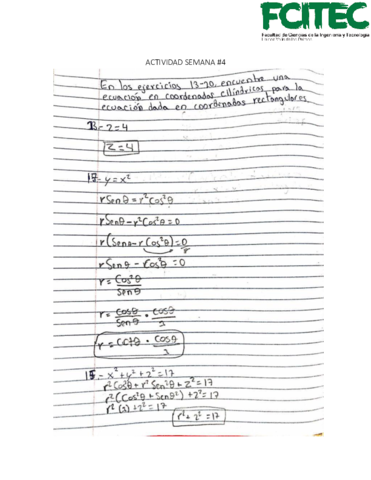 FCITEC
Facultad de Ciencias de la Ingeniería y Tecnología
ACTIVIDAD SEMANA #4
En los ejercicios 13-20, encuentre una
ecuación en coordenadas cilíndricas para la
ecuación dada en coordenadas rectangulares.
13- z=4
z=4
17- y=x²
rSenθ=r²Cos²θ
rSenθ-r²Cos²θ=0
r(Senθ-r Cos²θ)=0/r
rSenθ - rCos²θ=0
r= Cos²θ/Senθ
r= Cosθ/Senθ · Cosθ/1
r= Cotθ · Cosθ/1
15- x²+y²+z²=17
r²Cos²θ+r²Sen²θ+z²=17
r²(Cos²θ+Senθ²)+z²=17
r²(1)+z²=17
r²+z²=17